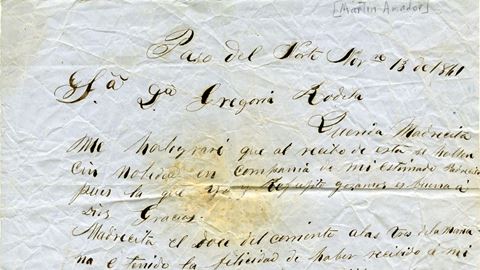 [Martin Amador]
Paso del Norte Nov.re 13 de 1861
S.a D.a Gregoria Rodela
Querida Madrecita
Me halegraré que al recibo de esta se hallen
cin novedad en compania de mi estimado
pues la que yo y gosamos es buena á
Dios Gracias.
Madrecita el doce del corriente a las tres de la maña
na e tenido la felicidad de haber recibido á mi